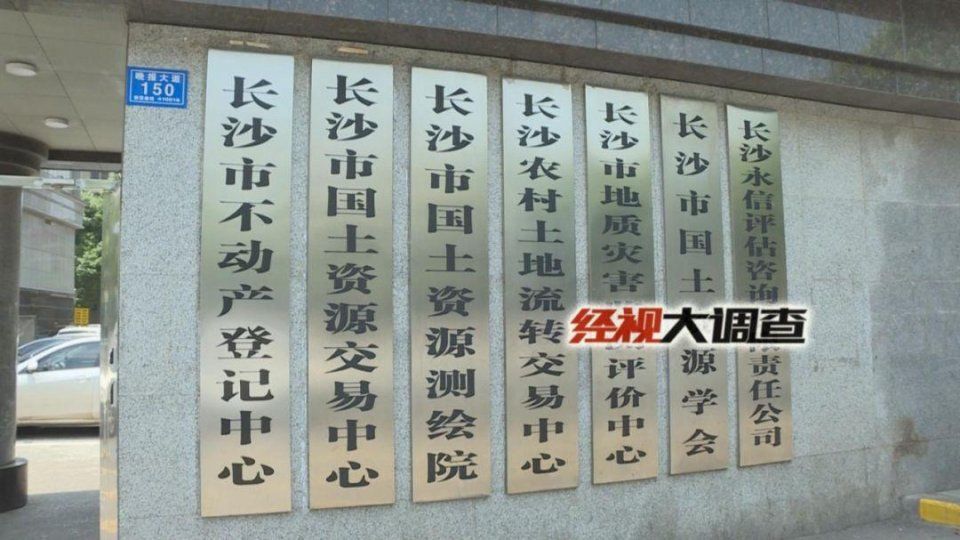 晚报大道
150
长沙市不动产登记中心
长沙市国土资源交易中心
长沙市国土资源测绘院
长沙农村土地流转交易中心
长沙市地质灾害 评价中心
长沙市国土 源学会
长沙永信评估咨询 责任公司
经视大调查